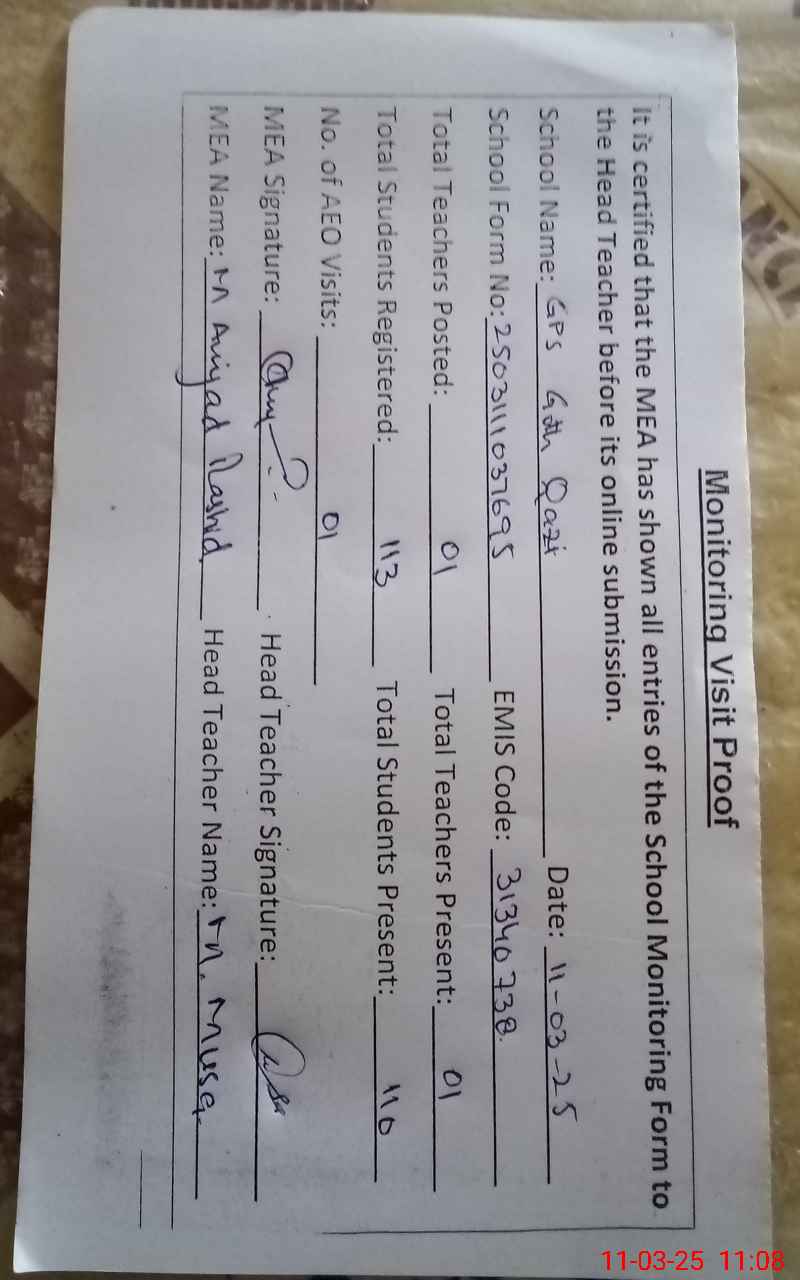 Monitoring Visit Proof
It is certified that the MEA has shown all entries of the School Monitoring Form to
the Head Teacher before its online submission.
School Name: GPS Goth Qazi Date: 11-03-25
School Form No: 250311037695 EMIS Code: 31340738
Total Teachers Posted: 01 Total Teachers Present: 01
Total Students Registered: 113 Total Students Present: 110
No. of AEO Visits: 01
MEA Signature: Head Teacher Signature:
MEA Name: M Amjad Rashid Head Teacher Name: M. Musa
11-03-25 11:08